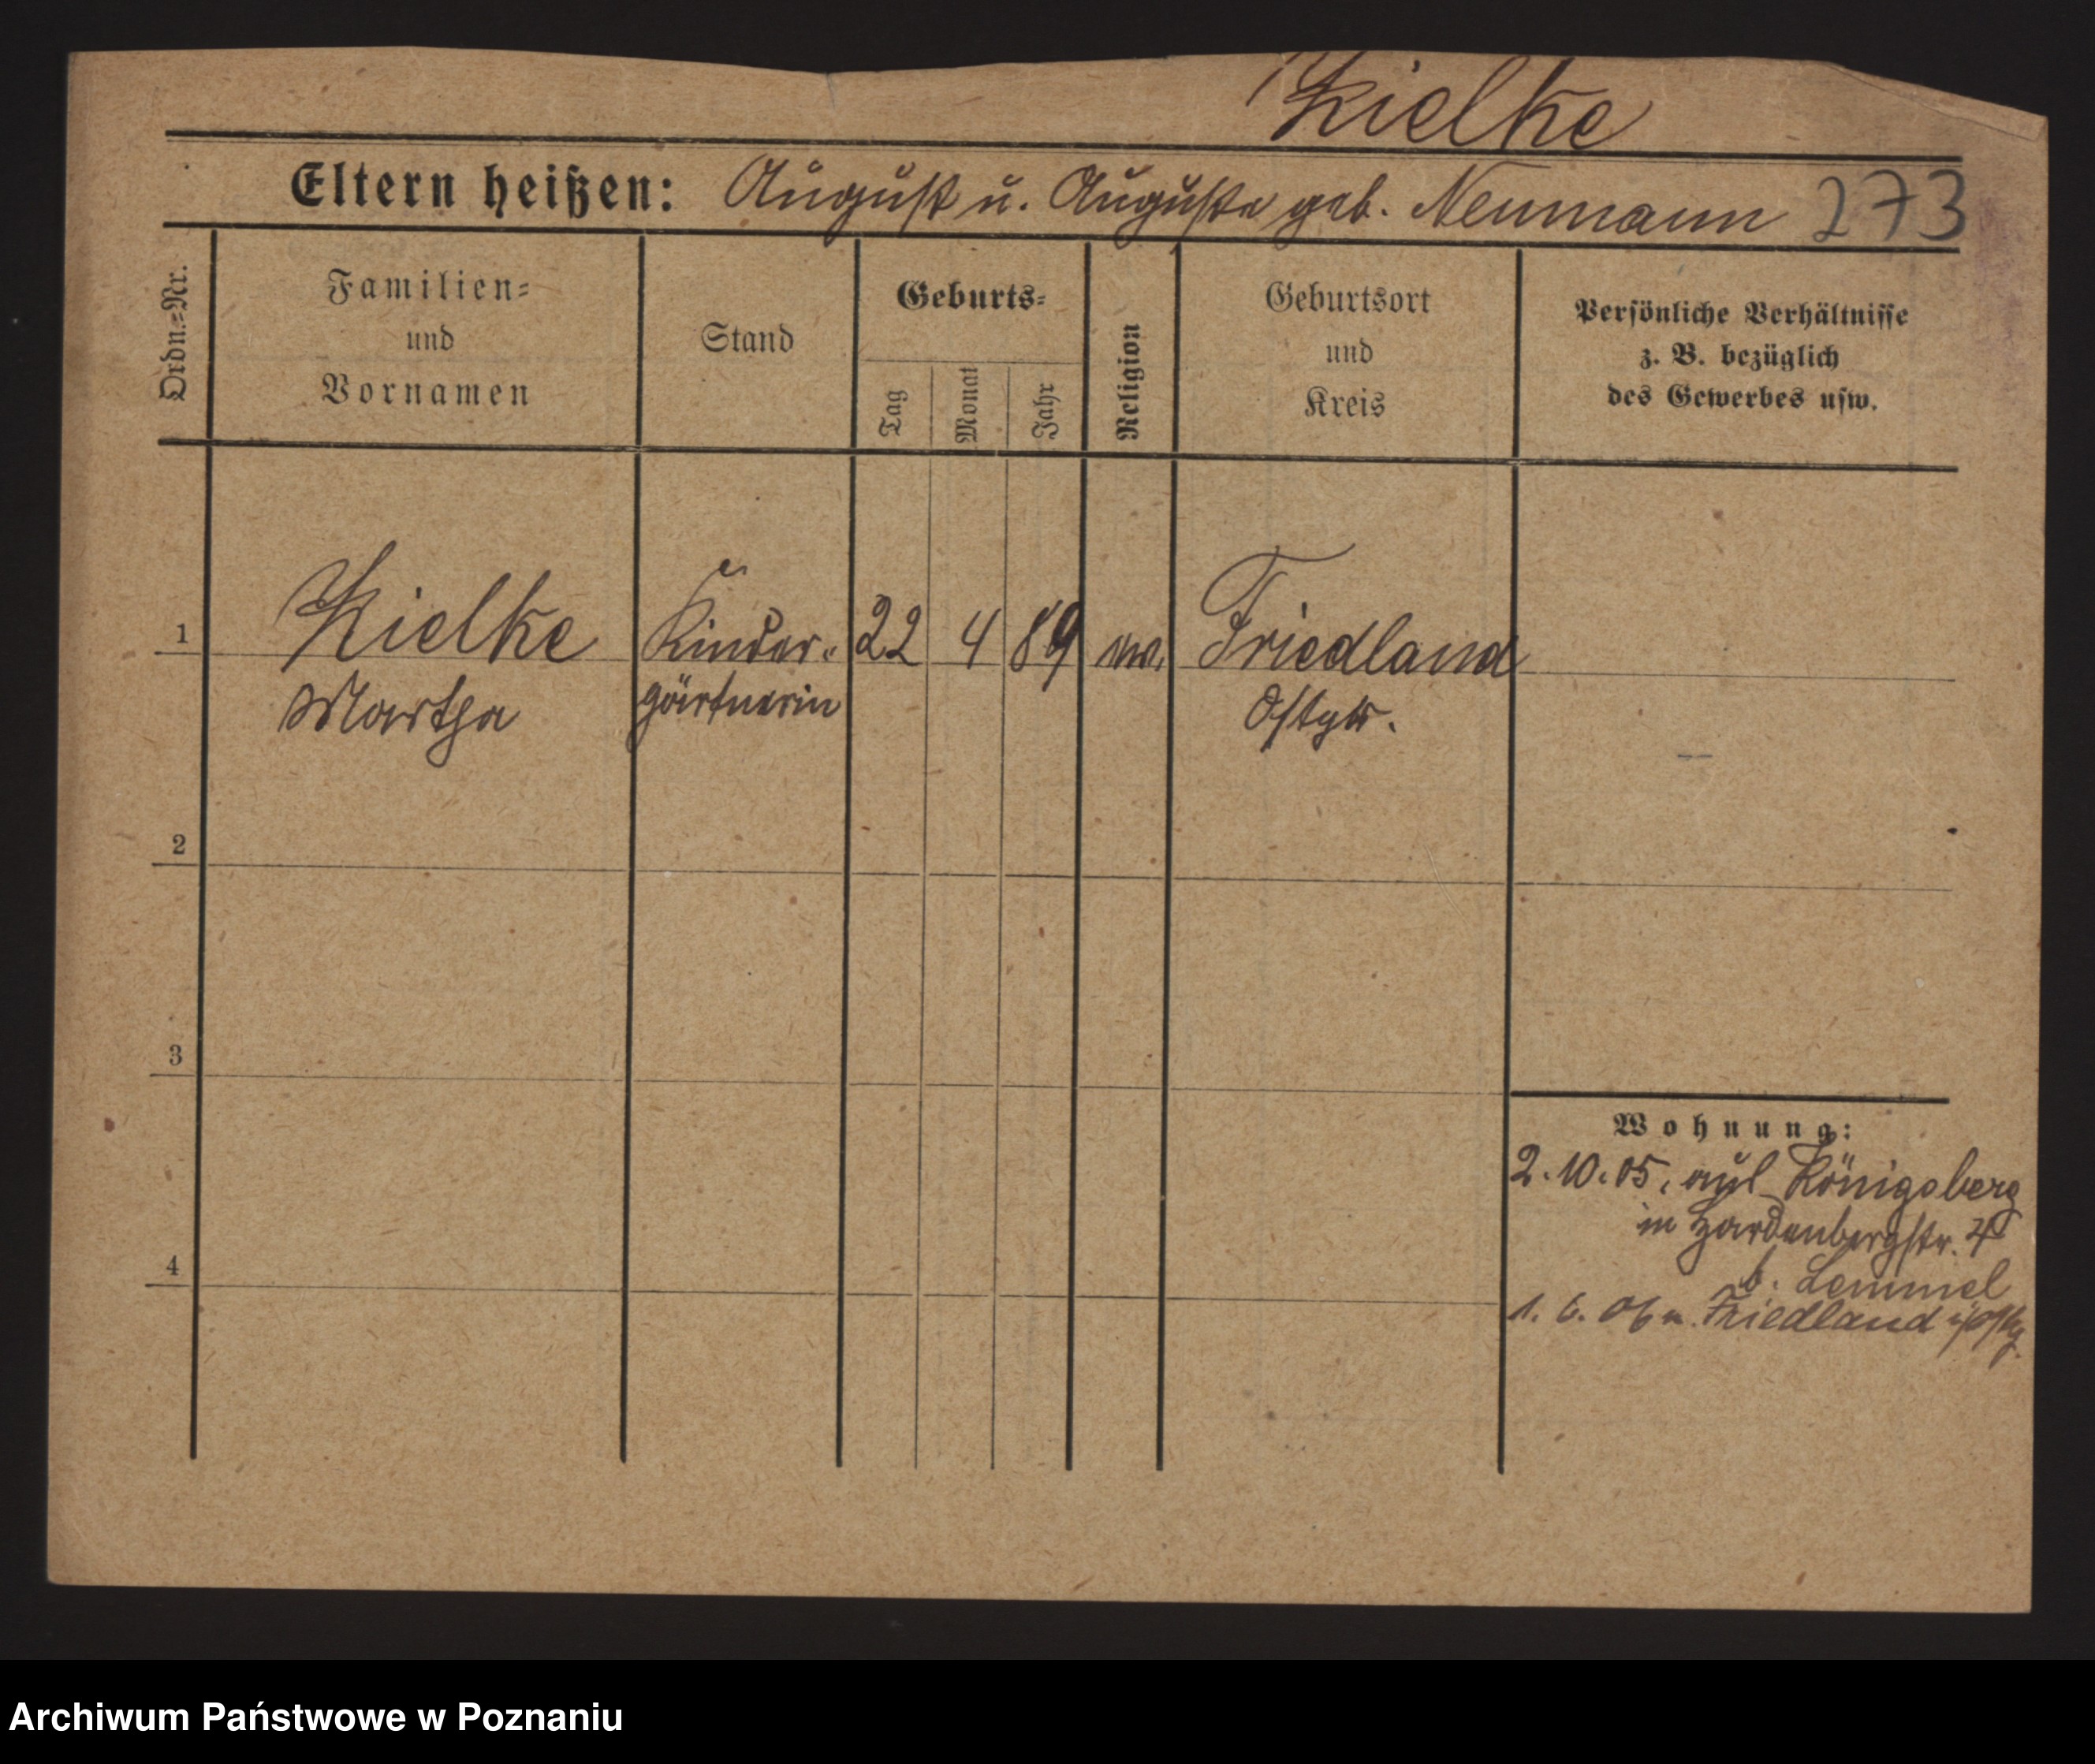 Kielke
Eltern heißen: August u. Auguste geb. Neumann 273
Ordn.=Nr.
Familien=
und
Vornamen
Stand
Geburts=
Tag
Monat
Jahr
Religion
Geburtsort
und
Kreis
Persönliche Verhältnisse
z. B. bezüglich
des Gewerbes usw.
1 Kielke Kinder- 22 4 89 ev. Friedland
Martha gärtnerin Ostpr.
2
3
4
Wohnung:
2.10.05. aus Königsberg
in Hardenbergstr. 4
b. Lemmel
1. 6. 06 n. Friedland i/Ostpr.
Archiwum Państwowe w Poznaniu